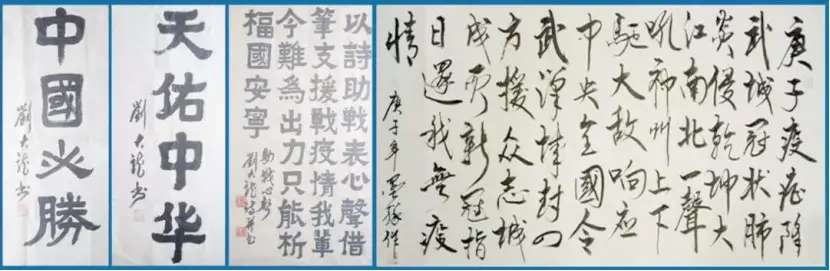 中國必勝
劉大龍书
天佑中华
劉大龍书
以詩助戰表心聲借
筆支援戰疫情我輩
今難為出力只能析
福國安寧
助戰心聲
劉大龍詩並书
庚子疫症降
武城冠状肺
炎侵乾坤大
江南北一聲
吼神州上下
駈大敌响应
中央全國令
武漢城封四
方援众志城
成新冠指
日還我無疫
情
庚子年墨缘作